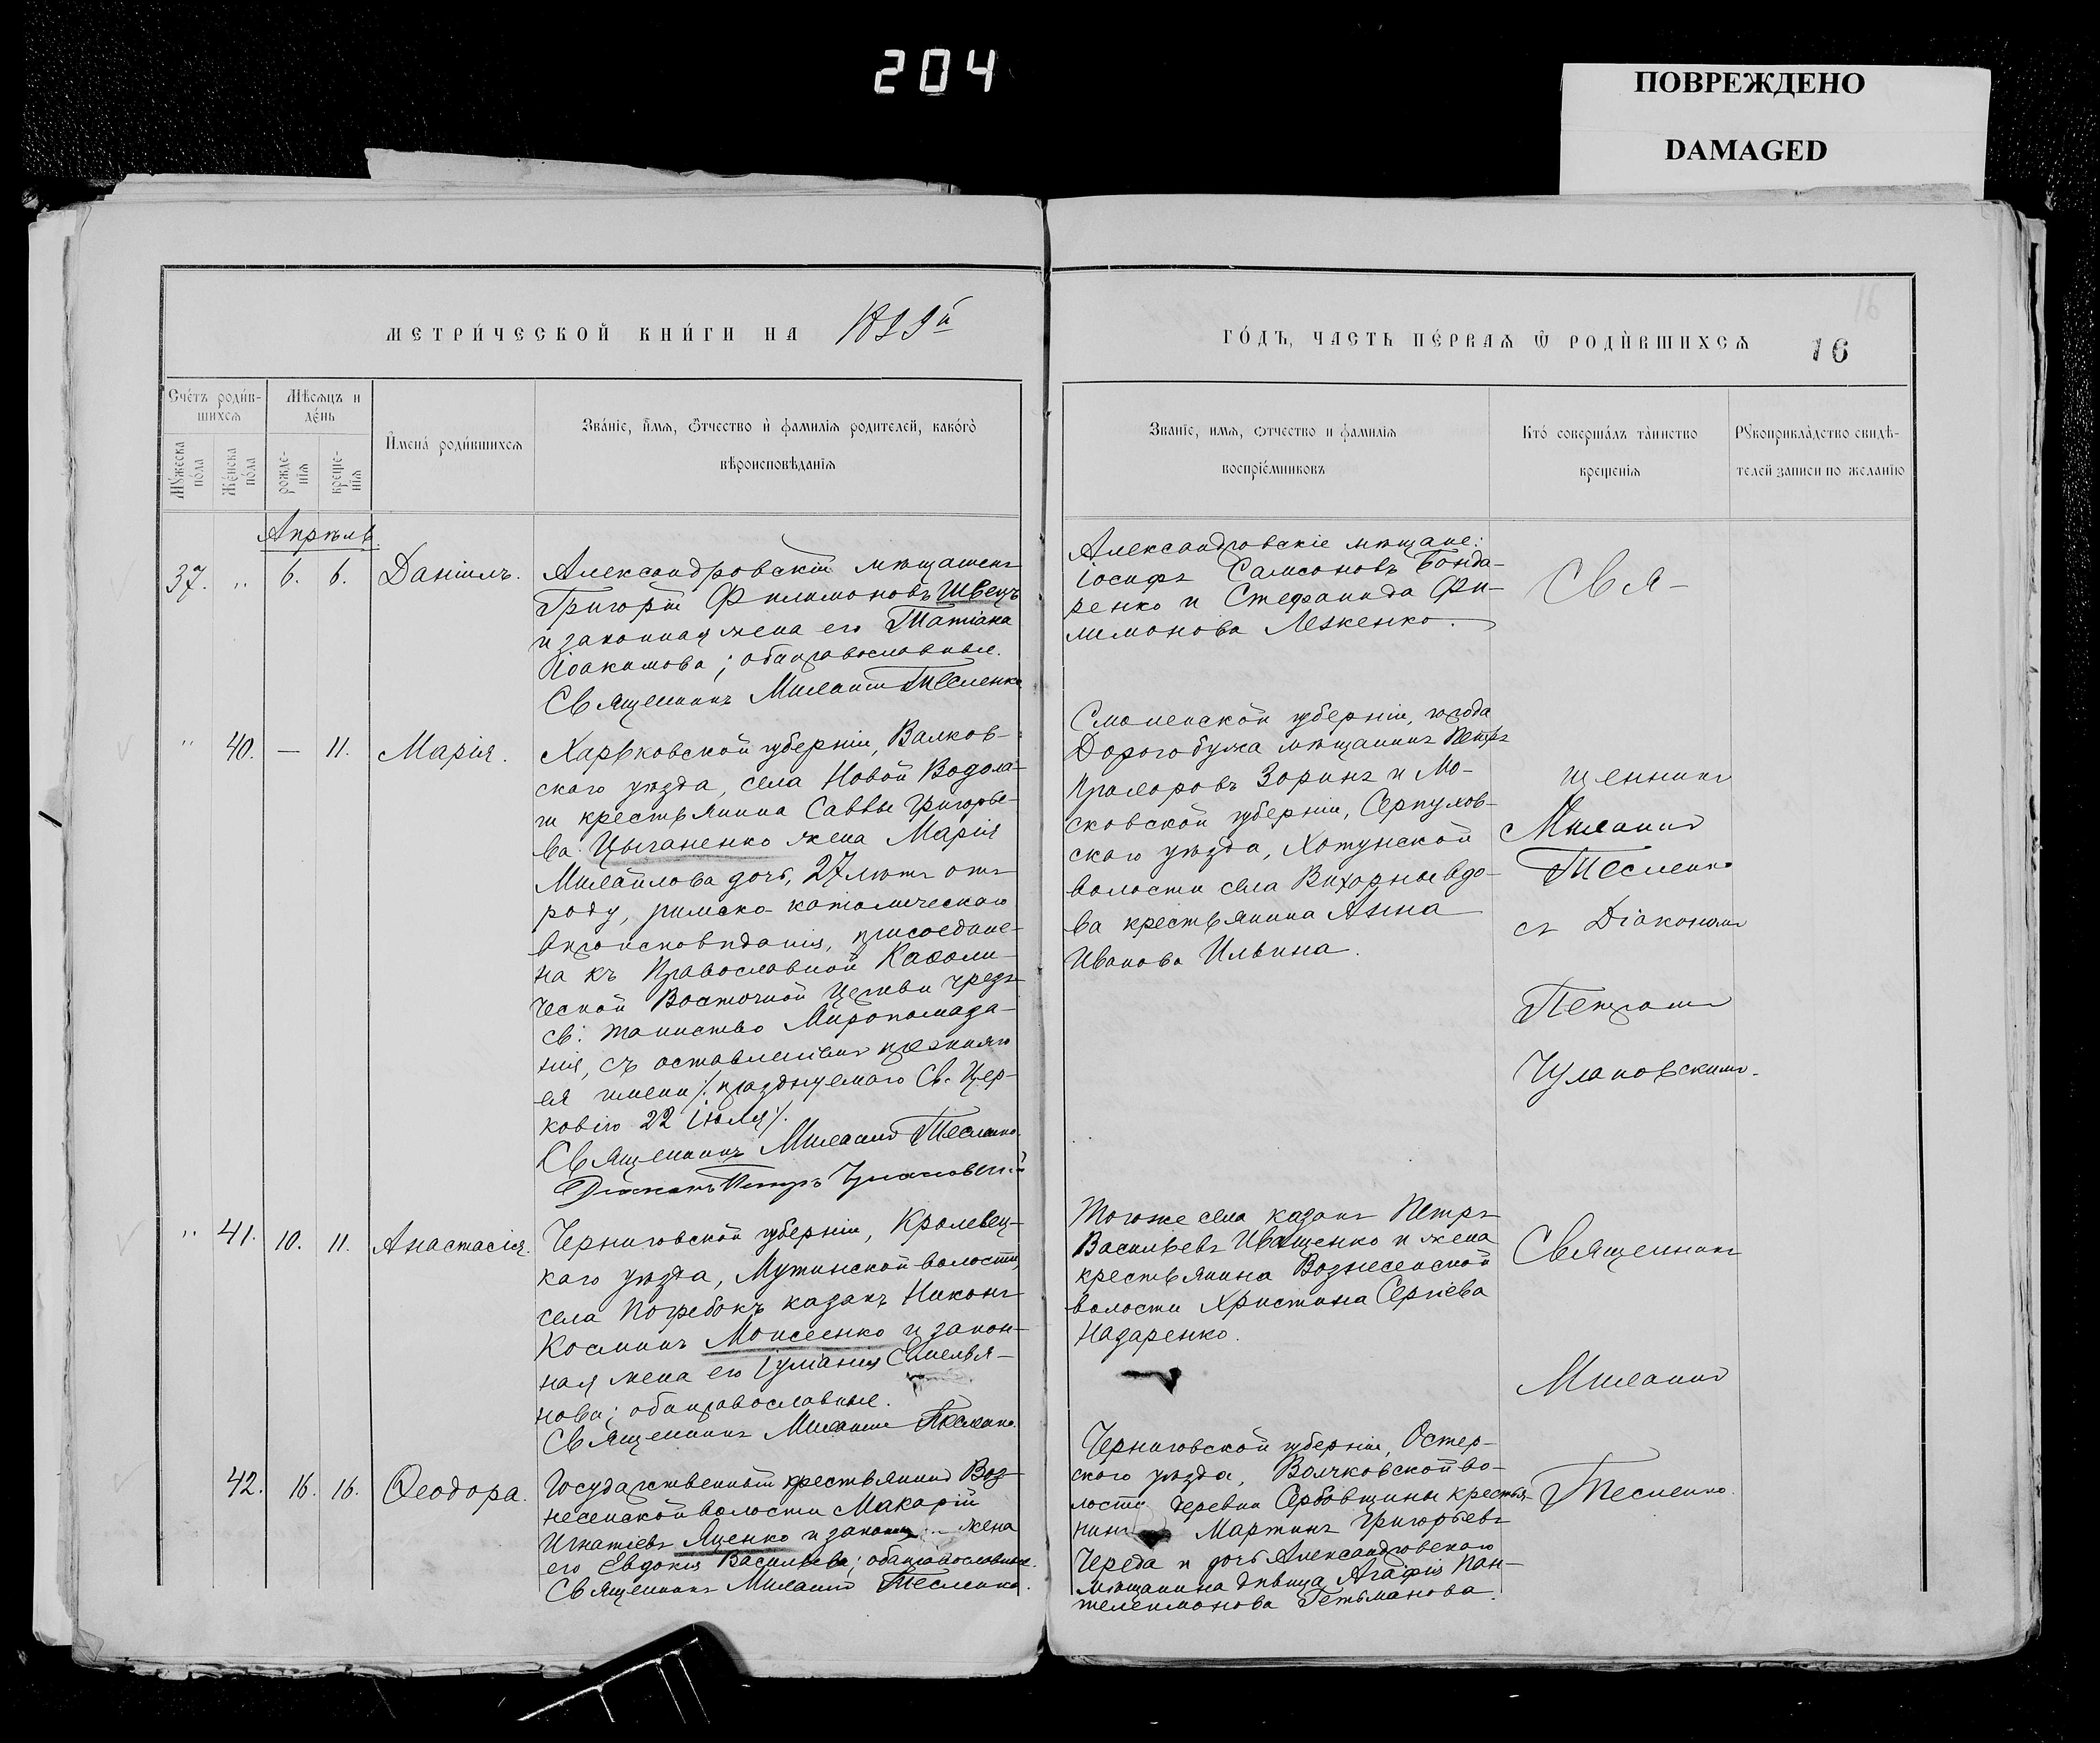 204
ПОВРЕЖДЕНО
DAMAGED
МЕТРИ́ЧЕСКОЙ КНИ́ГИ НА 1899й
ГО́ДЪ, ЧАСТЬ ПЕ́РВАѦ Ѿ РОДИ́ВШИХСѦ 16
16
Сче́тъ роди́в-
шихсѧ
Мѣ́сѧцъ и
де́нь
Му́жеска
по́ла
Же́нска
по́ла
рожде-
нїѧ
креще-
нїѧ
И҆мена̀ роди́вшихсѧ
Зва́нїе, и҆́мѧ, ѻ҆́тчество и҆ фамилїѧ родителей, како́гѡ
вѣроисповѣ́данїѧ
Званїе, имѧ, ѻтчество и фамилїѧ
воспрїе́мниковъ
Кто̀ соверша́лъ та́инство
креще́нїѧ
Рꙋкоприкла́дство свидѣ́-
телей записи по желанїю
Апрѣль.
37. " 6. 6. Даніилъ.
Александровскій мѣщанинъ
Григорій Филимоновъ Швецъ
и законная жена его Татіана
Іоакимова; оба православные.
Священникъ Милетій Тесленко
Александровскіе мѣщане:
Іосифъ Самсоновъ Бонда-
ренко и Стефанида Фи-
лимонова Лезкенко.
Свя-
" 40. — 11. Марія.
Харьковской губерніи, Валков-
скаго уѣзда, села Новой Водола-
ги крестьянина Саввы Григорье-
ва Цыганенко жена Марія
Михайлова дочь, 27 лѣтъ отъ
роду, римско-католическаго
вѣроисповѣданія, присоедине-
на къ Православной Каѳоли-
ческой Восточной Церкви чрезъ
св. таинство Мѵропомаза-
нія, съ оставленіемъ прежняго
ея имени /: празднуемаго Св. Цер-
ковію 22 Іюля :/.
Священникъ Милетій Тесленко
Діаконъ Петръ Чулановскій
Смоленской губерніи, города
Дорогобужа мѣщанинъ Петръ
Зоринъ и Мо-
сковской губерніи, Серпухов-
скаго уѣзда, Хотунской
волости села вдо-
ва крестьянина Анна
Иванова Ильина.
щенникъ
Милетій
Тесленко
съ Діакономъ
Петромъ
Чулановскимъ.
" 41. 10. 11. Анастасія.
Черниговской губерніи, Кролевец-
каго уѣзда, Мутинской волости,
села Погребокъ казакъ Никонъ
Косминъ Моисеенко и закон-
ная жена его Іуліанія Емелья-
нова; оба православные.
Священникъ Милетій Тесленко.
Тогоже села казакъ Петръ
Васильевъ Иващенко и жена
крестьянина Вознесенской
волости Христина Сергіева
Назаренко.
Священникъ
Милетій
42. 16. 16. Ѳеодора.
Государственный крестьянинъ Воз-
несенской волости Макарій
Игнатіевъ Яценко и законная жена
его Евдокія Васильева; оба православные.
Священникъ Милетій Тесленко.
Черниговской губерніи, Остер-
скаго уѣзда, во-
лости деревни Сербовщины крестья-
нинъ Мартинъ Григорьевъ
Череда и дочь Александровскаго
мѣщанина дѣвица Агафія Пан-
телеимонова Гетьманова.
Тесленко.